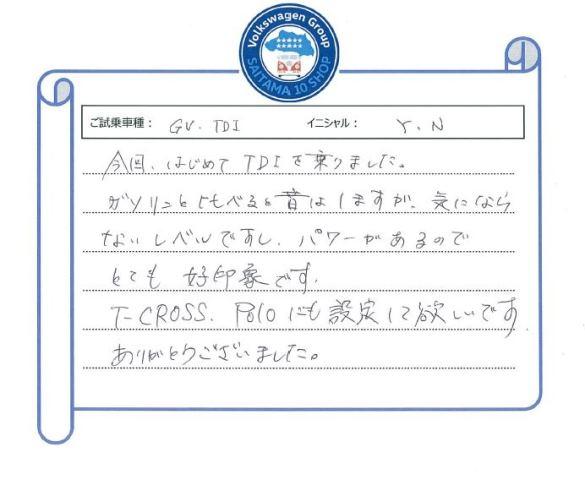 Volkswagen Group
SAITAMA 10 SHOP
ご試乗車種： GV. TDI イニシャル： Y. N
今回、はじめて TDI を乗りました。
ガソリンとくらべると音はしますが、気になら
ないレベルですし、パワーがあるので
とても 好印象です。
T-CROSS、Poloにも設定して欲しいです
ありがとうございました。